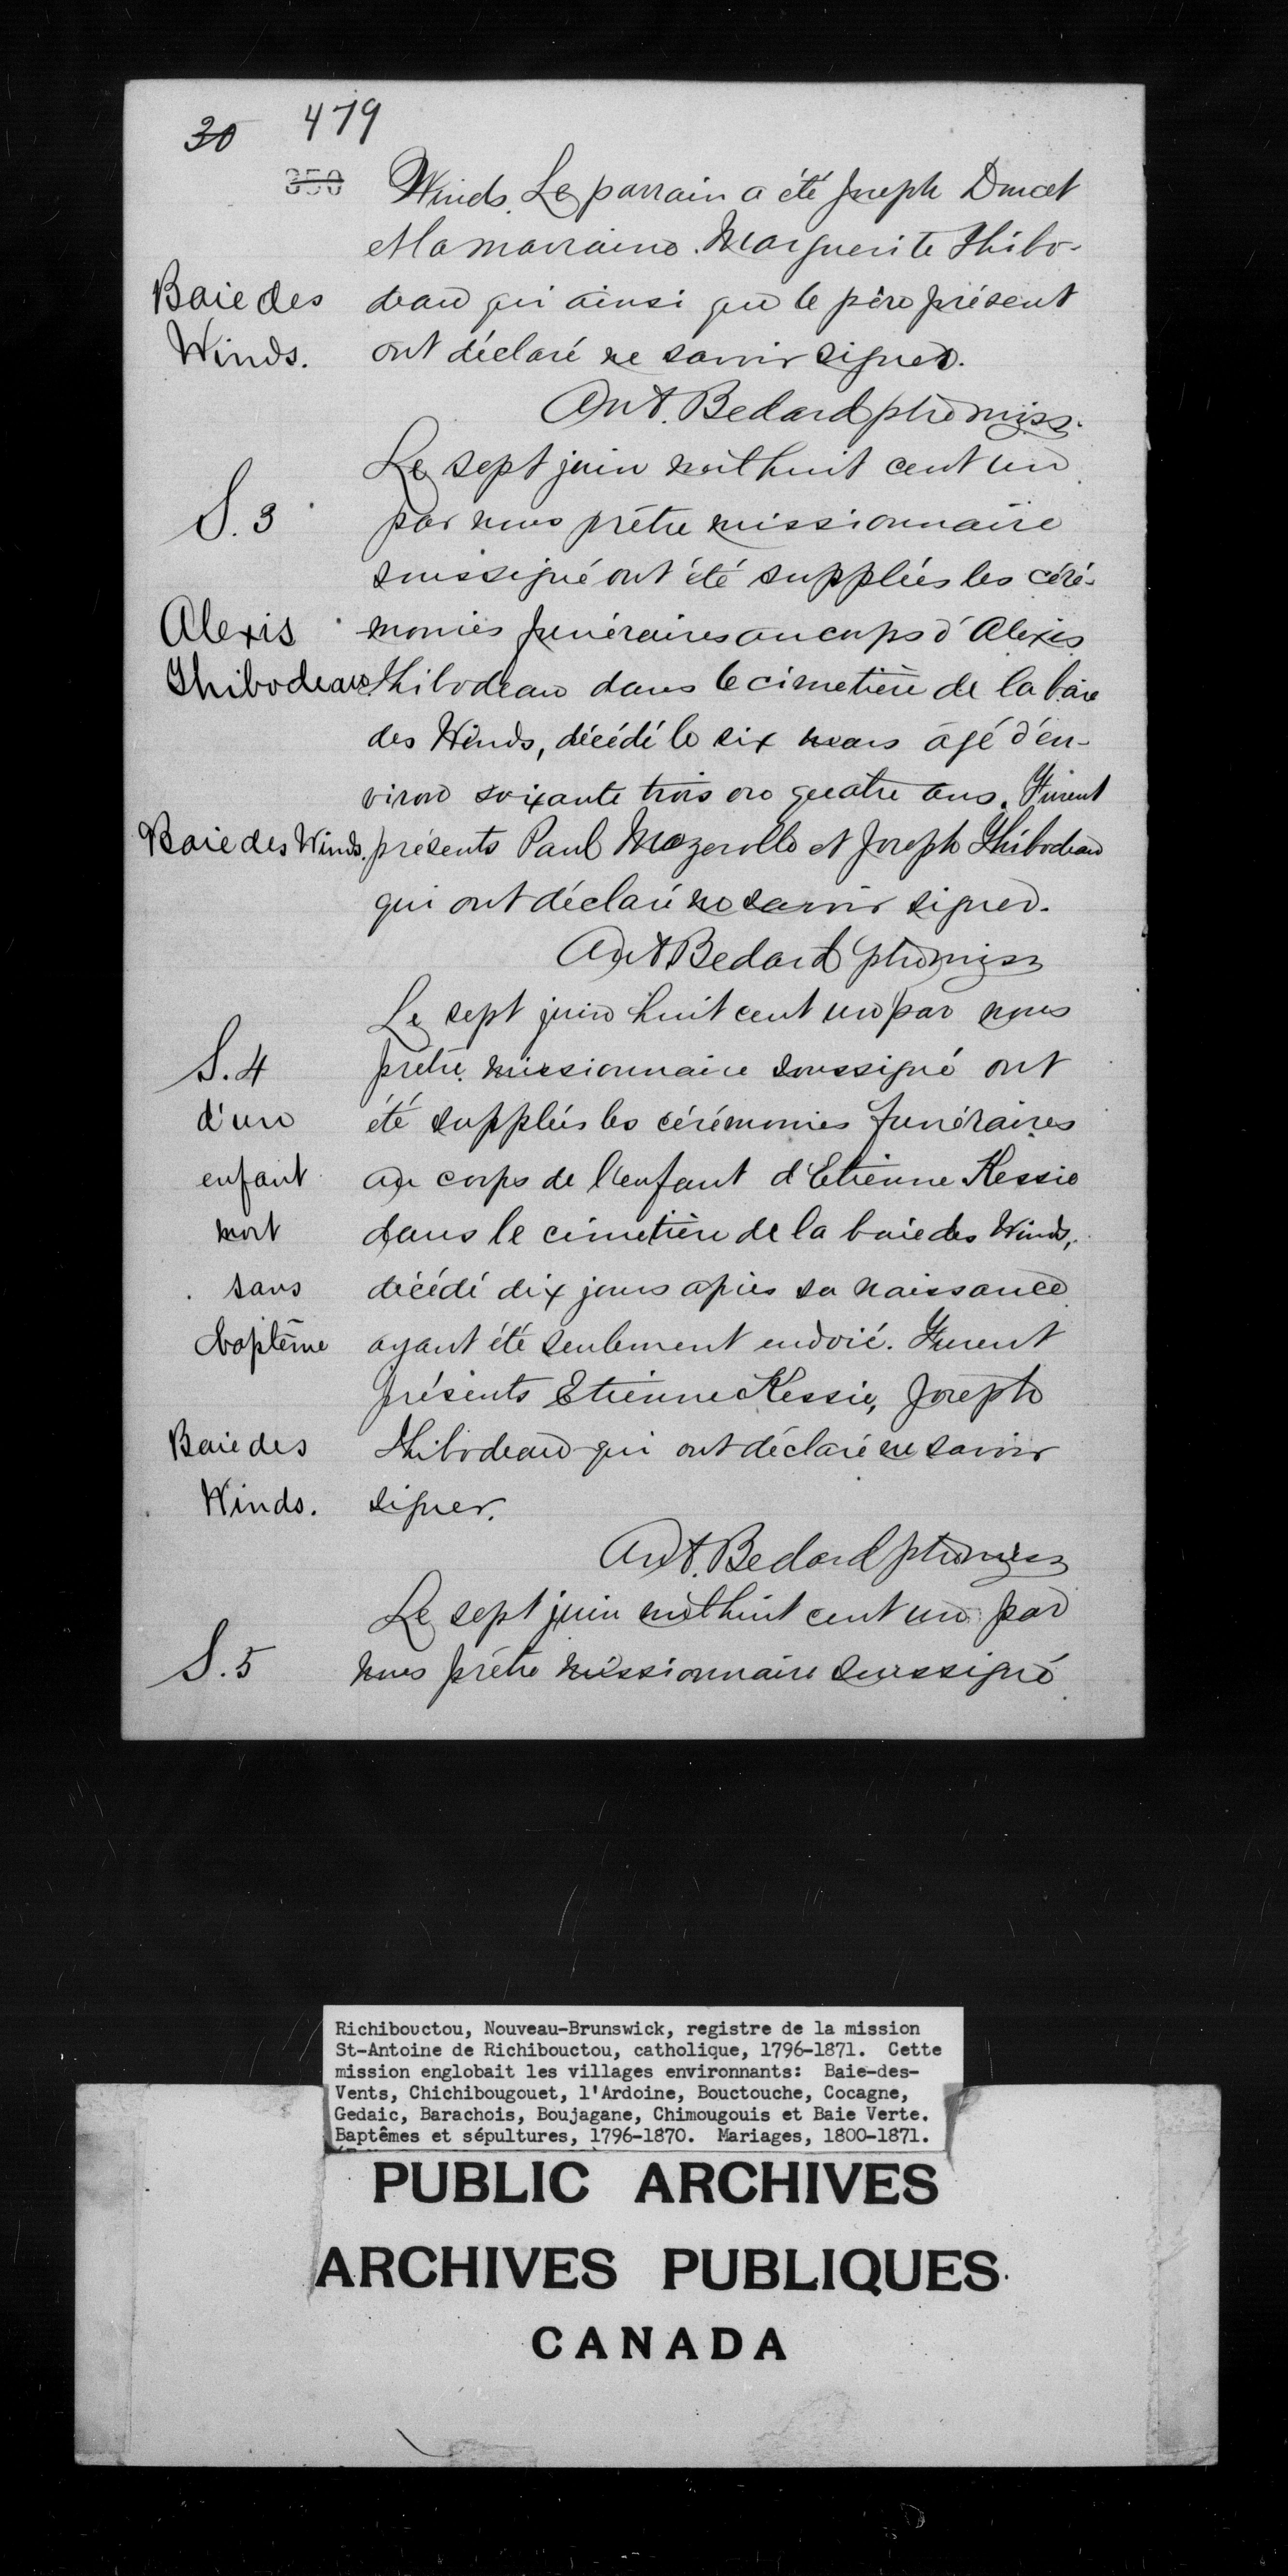 30 479
350 Winds. Le parrain a été Joseph Doucet
et la marraine Marguerite Thibo-
Baie des deau qui ainsi que le père présent
Winds. ont déclaré ne savoir signer.
Ant. Bedard ptre miss.
Le sept juin mil huit cent un
S. 3 par nous prêtre missionnaire
soussigné ont été supplées les céré-
Alexis monies funéraires au corps d'Alexis
Thibodeau Thibodeau dans le cimetière de la baie
des Winds, décédé le six mars âgé d'en-
viron soixante trois ou quatre ans. Furent
Baie des Winds. présents Paul Mazerolle et Joseph Thibodeau
qui ont déclaré ne savoir signer.
Ant Bedard ptre miss
Le sept juin huit cent un par nous
S. 4 prêtre missionnaire soussigné ont
d'un été supplées les cérémonies funéraires
enfant au corps de l'enfant d'Etienne Kessie
mort dans le cimetière de la baie des Winds,
sans décédé dix jours après sa naissance
baptême ayant été seulement endoié. Furent
présents Etienne Kessie, Joseph
Baie des Thibodeau qui ont déclaré ne savoir
Winds. signer.
Ant. Bedard ptre miss
Le sept juin mil huit cent un par
S. 5 nous prêtre missionnaire soussigné
Richibouctou, Nouveau-Brunswick, registre de la mission
St-Antoine de Richibouctou, catholique, 1796-1871. Cette
mission englobait les villages environnants: Baie-des-
Vents, Chichibougouet, l'Ardoine, Bouctouche, Cocagne,
Gedaic, Barachois, Boujagane, Chimougouis et Baie Verte.
Baptêmes et sépultures, 1796-1870. Mariages, 1800-1871.
PUBLIC ARCHIVES
ARCHIVES PUBLIQUES
CANADA